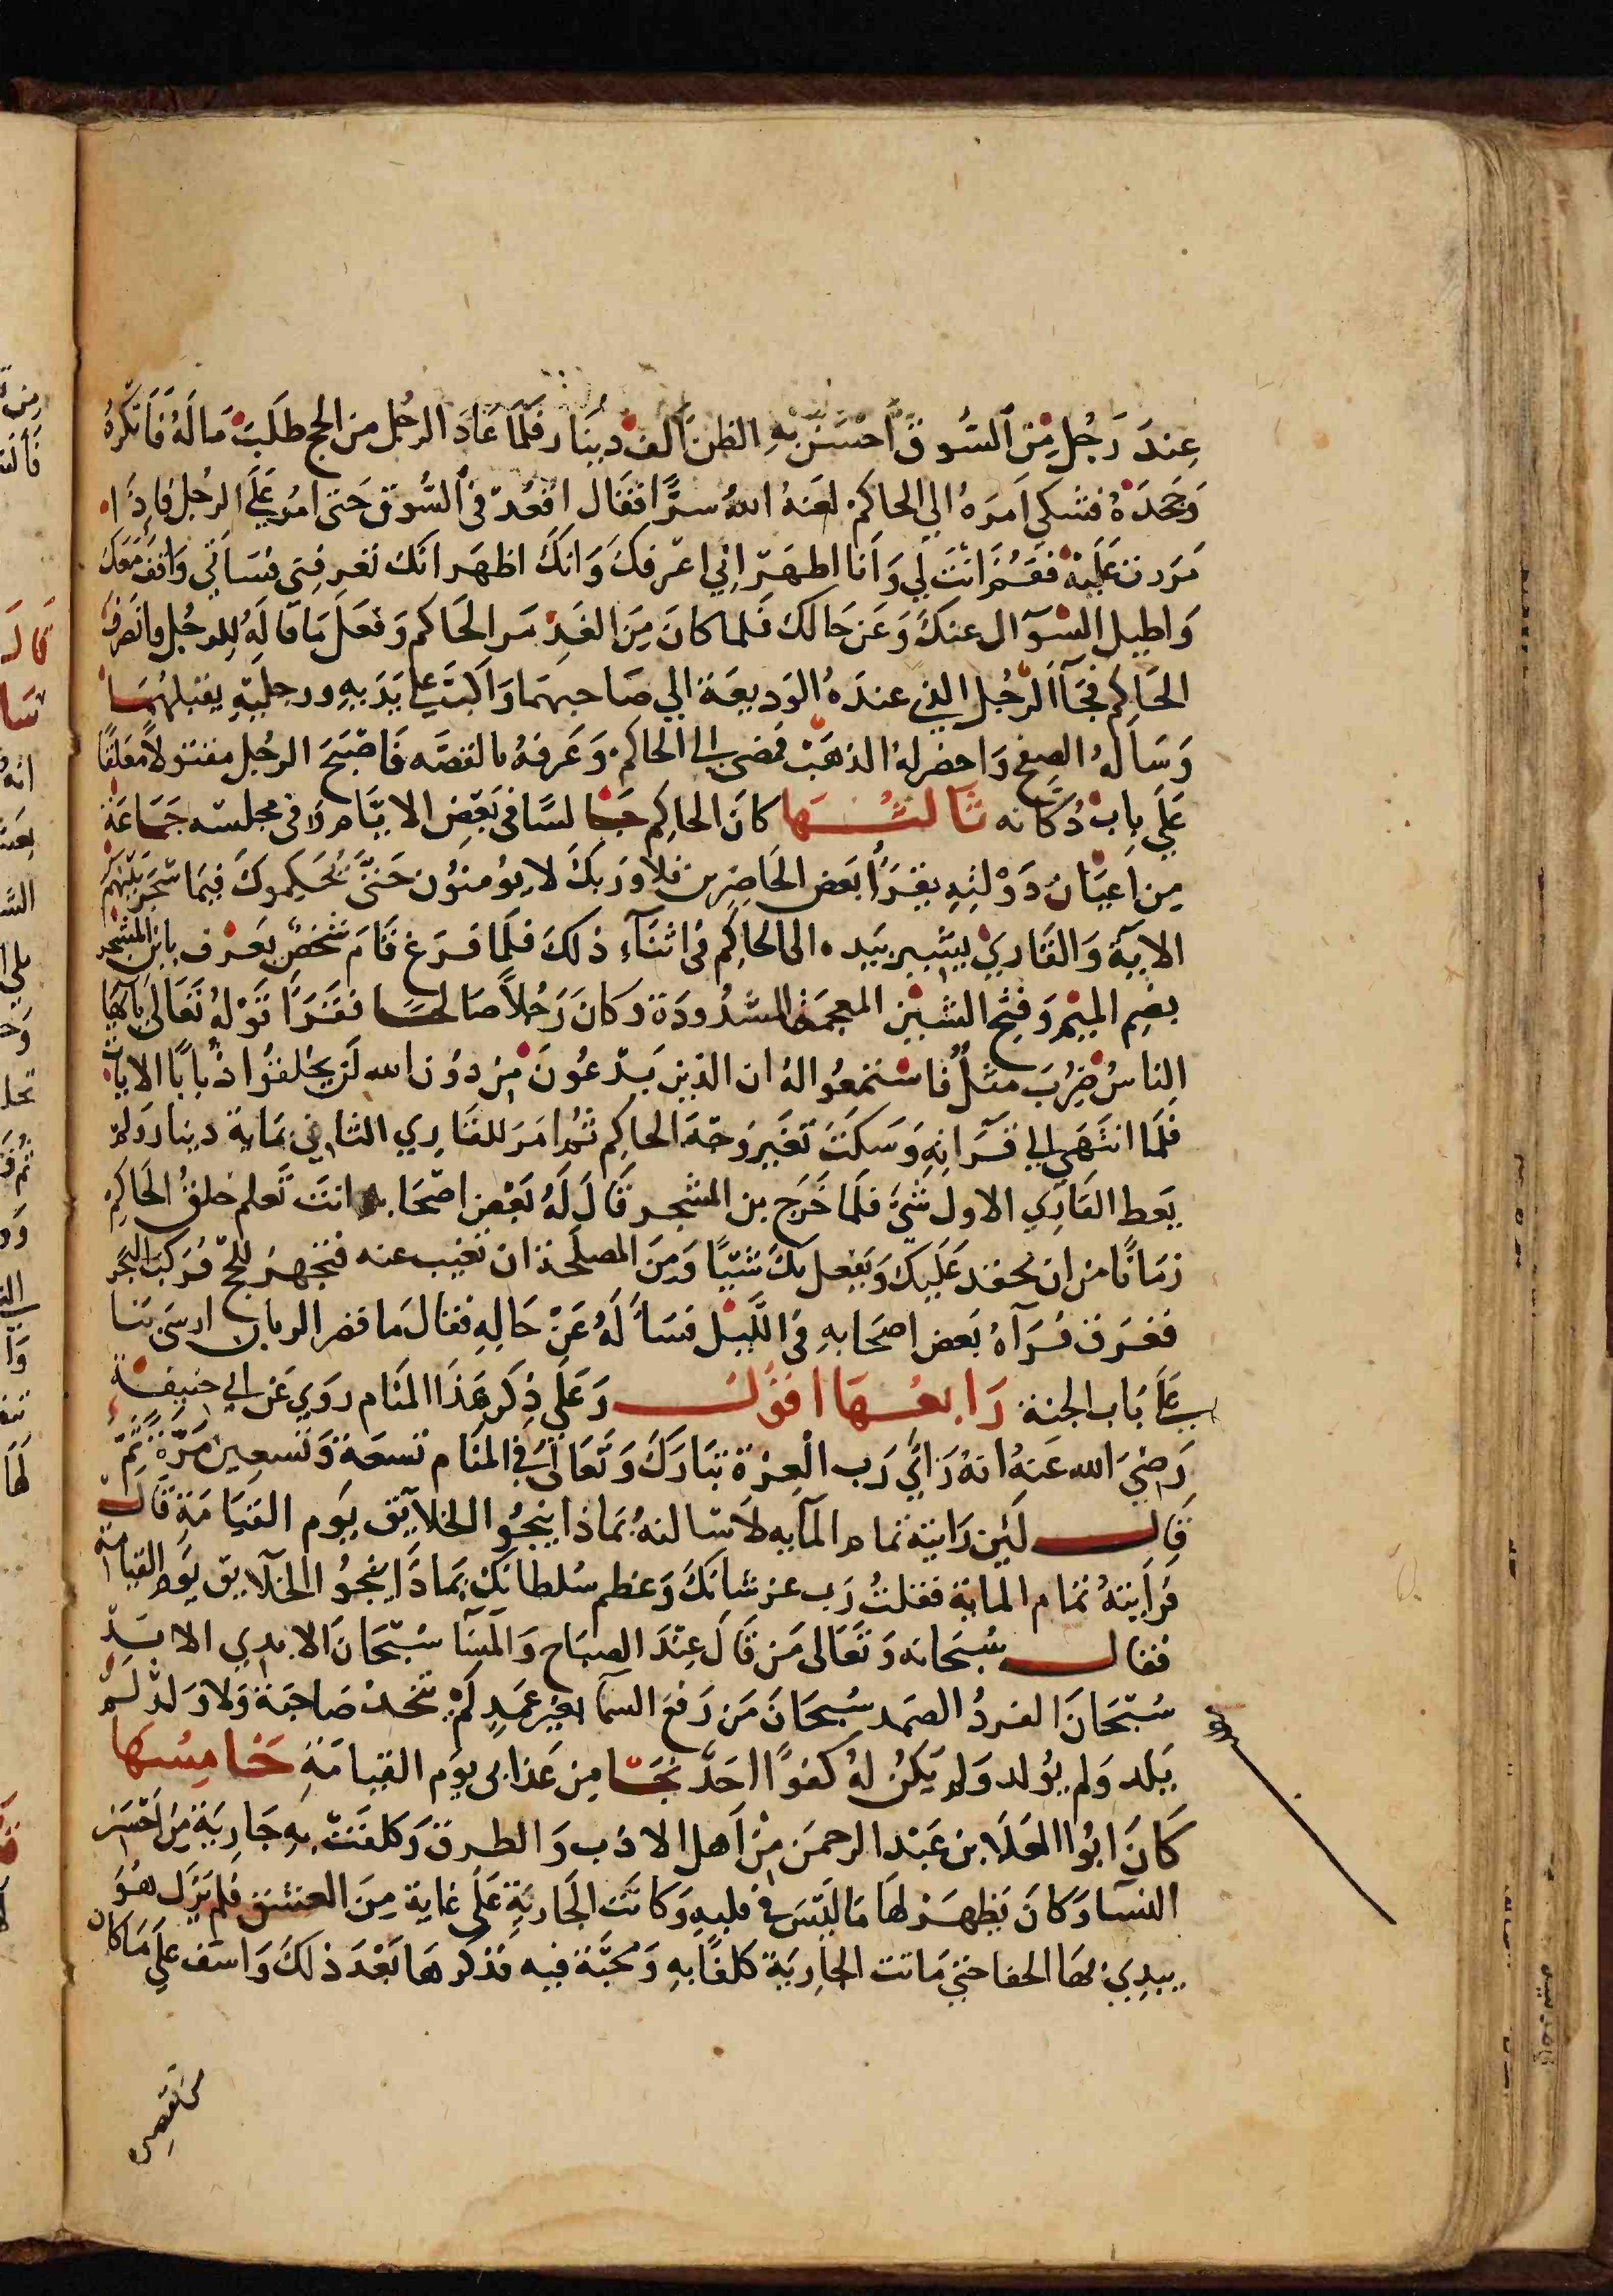 عِندَ رَجُلٍ مِنَ السُّوقِ اَحْسَنَ بِهِ الظن الف دِينَار فَلَمَّا عَادَ الرجُل من الحج طَلَبَ مَالَهُ فَانَكرَهُ
وَجَحَدَهُ فشكي اَمرَهُ الي الحاكم لعَنهُ اللهُ سرًّا فقَال اقعُدْ في السُّوق حَتى امُر عَلَي الرجُل فَاِذَا
مَرَرت عَليْه فقُم اَنتَ لي وَاَنا اظهَر اِني اعرفكَ وَانكَ اظهَر انَك تَعرفنِي فسَاَني وَاقف مَعَكَ
وَاطيل السُوآل عنكَ وَعَن حَالك فَلما كانَ مِنَ الغَدِ مَر الحَاكم وَفعَل مَا قالَهُ للرجُل وانصَرف
الحَاكِم فجَآ الرَّجُل الذي عندَهُ الوَديعَة الي صَاحبهَا وَاكبَّ علي يَدَيهِ ورجليْهِ يقبلهُمَا
وَسَالَهُ الصفح وَاحضرلهُ الذهَبْ فمضي الي الحاكم وَعَرفهُ بالقصَّه فَاصْبَحَ الرجُل مقتولاً معَلقًا
عَلَي بابْ دُكانه ثَالثُهَا كانَ الحاكِم جَالسًا في بَعضِ الايَّام وَفي مجلسه جَمَاعَة
مِن اَعيَان دَوْلتِهِ يقرَأُ بَعض الحَاضِرين فَلا وَرَبكَ لا يومنُون حَتيَّ يُحَكِموكَ فِيمَا شَجَرَ بَيْنهُم
الايَة وَالقَاريْ يشير بيَده الي الحاكِم في اثنَآءِ ذلكَ فلَمَّا فرَغ قَامَ شخصٌ يَعرْف بابن المشجر
بضِم الميْم وَفتْح الشيْن المعجمَة المشدُودَة وَكانَ رَجُلاً صَالحًا فقَرَأ قَوْلهُ تعَالي يَا اَيُّهَا
النَاسُ ضُرِبَ مثلٌ فَاسْتمعُوا لهُ ان الذين يَدْعُونَ مِن دوُن الله لَن يخلقُوا ذُبَابًا الايات
فلَمَّا انتَهَي الي قرَانِهِ وَسَكتَ تغَيرَ وَجهَ الحاكِم ثُم امَرَ للقَاري الثاني بمَاية دينار وَلم
يَعط القَارِي الاول شيَّ فلَمَا خَرَجَ بن المشجر قَالَ لَهُ بَعْض اصْحَابه انتَ تَعلم خلقُ الحَاكِم
زمَانًا من ان يحقد عَلَيكَ وَيفعل بكَ شيًا وَمِنَ المصلَحَة ان تغيب عنه فتجهز للحَجِ فركبَ البَحر
فغرَق فرآهُ بَعض اصحَابهِ في اللَّيل فسَالَهُ عَنْ حَالِهِ فقال مَا قصر الربان ارسَي بنَا
عَلَي بَاب الجنة رَابعُهَا اقوُل وَعَلَي ذِكر هَذَا المنَام روَي عَن ابي حنيفَة
رَضيَ الله عَنهُ انهُ رَاَي رَب الْعِزة تبَارَكَ وَتعَالَي في المنَام تسعَة وَتسعِين مَرَّة ثمَّ
قَال لئِن رَايته تمام المآيه لاَسَالنهُ بمَاذا ينجُوا الخلايَق يَوم القيَامَة قَالَ
فرَايتهُ تمَام المَاية فقلتُ رَب عز شانكَ وَعَظم سُلطانكَ بمَاذَا ينجُوا الخلآيق يَوم القيامة
فقال سُبحَانه وَتعَالى مَن قَالَ عِنْدَ الصبَاح وَالمسَآ سُبْحَانَ الابدي الابَدِ
سُبْحَانَ الفردُ الصمَد سُبحَانَ مَن رَفعَ السمآ بغير عمَدٍ لَمْ يتخذ صَاحبَة وَلا وَلدْ لَم
يَلد وَلم يُولد وَلم يَكنُ لهُ كفوًا احَد نجَا مِن عَذابي يَوم القيامَةِ خَامِسُهَا
كَانَ ابُو العَلَا بن عَبْد الرحمن مْن اَهل الادَب وَالظرف وَكلفَتْ بهِ جَاريَة مِن اَحْسَن
النسَا وَكانَ يَظهَر لهَا مَا ليْسَ في قلبهِ وَكانَت الجَاريَةِ عَلَي غاية مِنَ العشق فلم يَزَل هُوَ
يبدِي لهَا الجفا حَتي مَاتت الجَاريَة كلَفًا بهِ وَمحَبَّة فيه فَذكرهَا بَعْدَ ذلكَ وَاسف علَي مَا كان